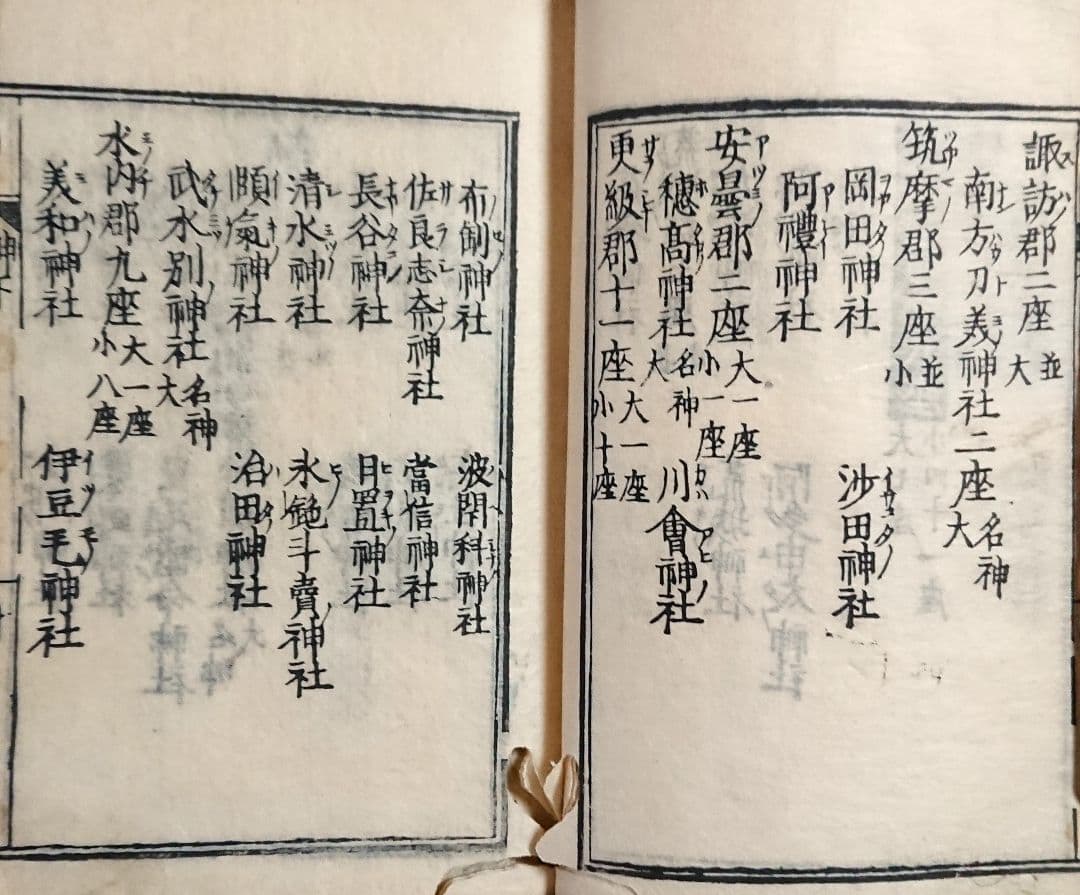 諏訪郡二座並大
南方刀美神社二座名神大
筑摩郡三座並小
岡田神社 沙田神社
阿禮神社
安曇郡二座大一座小一座
穗髙神社名神大 川會神社
更級郡十一座大一座小十座
布制神社 波閇科神社
佐良志奈神社 當信神社
長谷神社 日置神社
清水神社 氷鉋斗賣神社
頤氣神社 治田神社
武水別神社名神大
水内郡九座大一座小八座
美和神社 伊豆毛神社